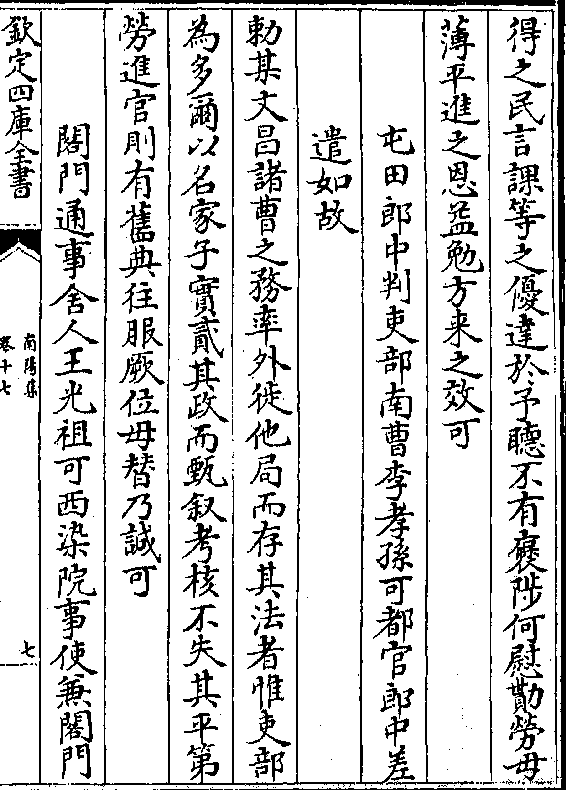 得之民言課等之優達於予聽不有褒陟何慰勤勞毋
薄平進之恩益勉方來之效可
屯田郎中判吏部南曹李孝孫可都官郎中差
遣如故
勅某文昌諸曹之務率外徙他局而存其法者惟吏部
為多爾以名家子實貳其政而甄叙考核不失其平第
勞進官則有舊典往服厥位毋替乃誠可
閤門通事舍人王光祖可西染院事使兼閤門
欽定四庫全書
南陽集
卷十七
七